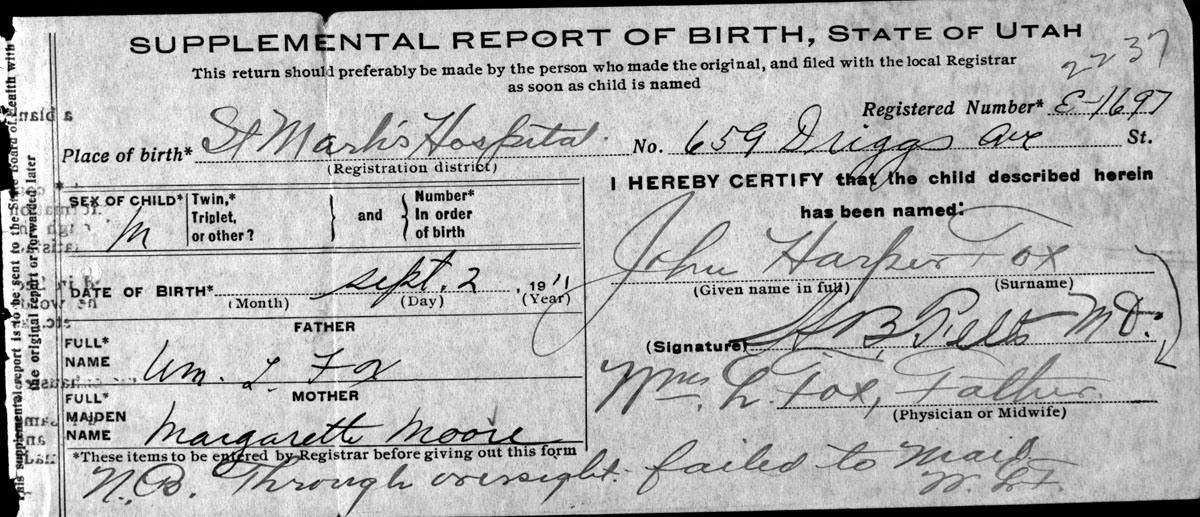 SUPPLEMENTAL REPORT OF BIRTH, STATE OF UTAH
This return should preferably be made by the person who made the original, and filed with the local Registrar
as soon as child is named
2237
Registered Number* E-1697
Place of birth* St Mark's Hospital. No. 659 Driggs Ave St.
(Registration district)
SEX OF CHILD* M
Twin,*
Triplet,
or other?
and
Number*
In order
of birth
DATE OF BIRTH* Sept. 2, 1911
(Month) (Day) (Year)
FATHER
FULL*
NAME Wm. L. Fox
MOTHER
FULL*
MAIDEN
NAME Margarette Moore
*These items to be entered by Registrar before giving out this form
I HEREBY CERTIFY that the child described herein
has been named:
John Harper Fox
(Given name in full) (Surname)
(Signature) H. B. M.D.
Wm. L. Fox, Father.
(Physician or Midwife)
N.B. Through oversight failed to mail
W.L.F.
This supplemental report is to be sent to the State Board of Health with
the original report or forwarded later